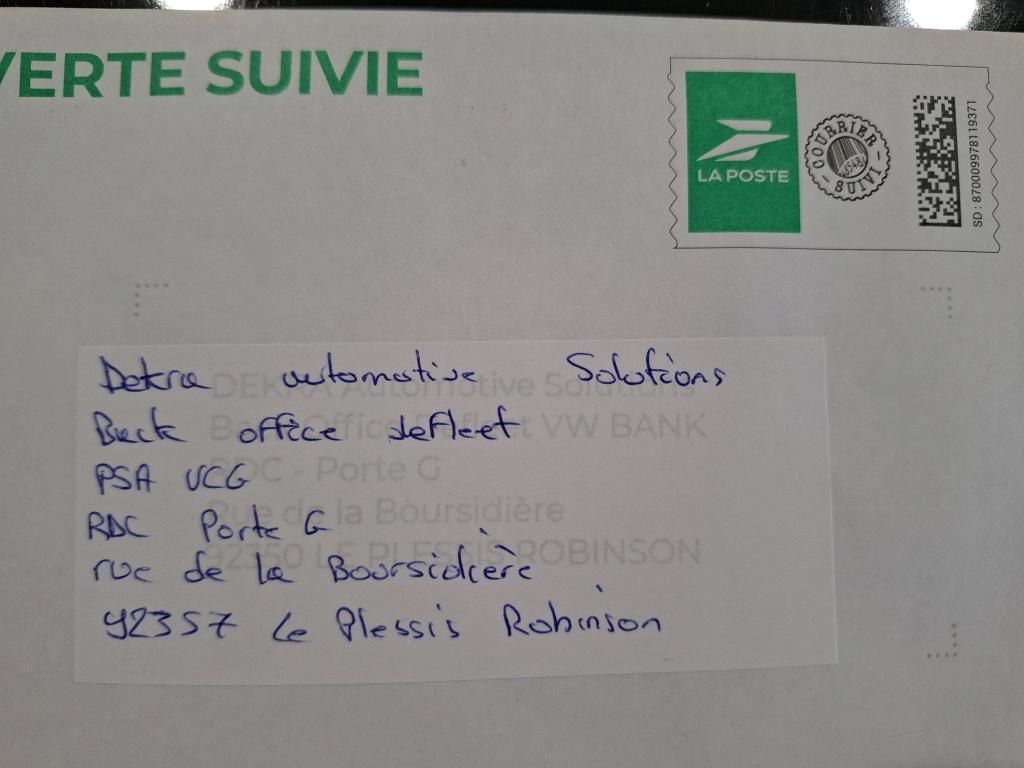 VERTE SUIVIE
LA POSTE
COURRIER SUIVI
SD : 870009978119371
Dekra automotive Solutions
Back office defleet
PSA UCG
RDC Porte G
rue de la Boursidière
92357 Le Plessis Robinson
DEKRA Automotive Solutions
Back Office Defleet VW BANK
RDC - Porte G
Rue de la Boursidière
92350 LE PLESSIS ROBINSON